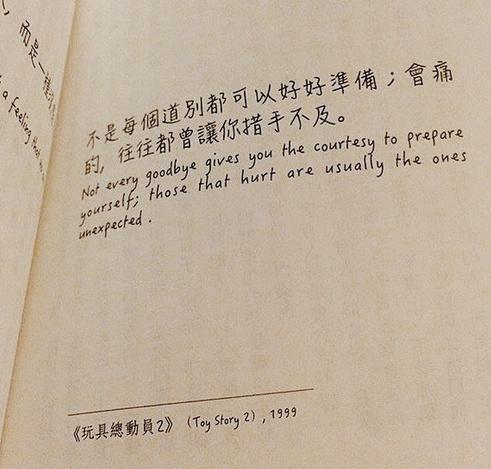 而是一種
a feeling that
不是每個道別都可以好好準備；會痛
的，往往都曾讓你措手不及。
Not every goodbye gives you the courtesy to prepare
yourself; those that hurt are usually the ones
unexpected.
《玩具總動員2》（Toy Story 2）, 1999